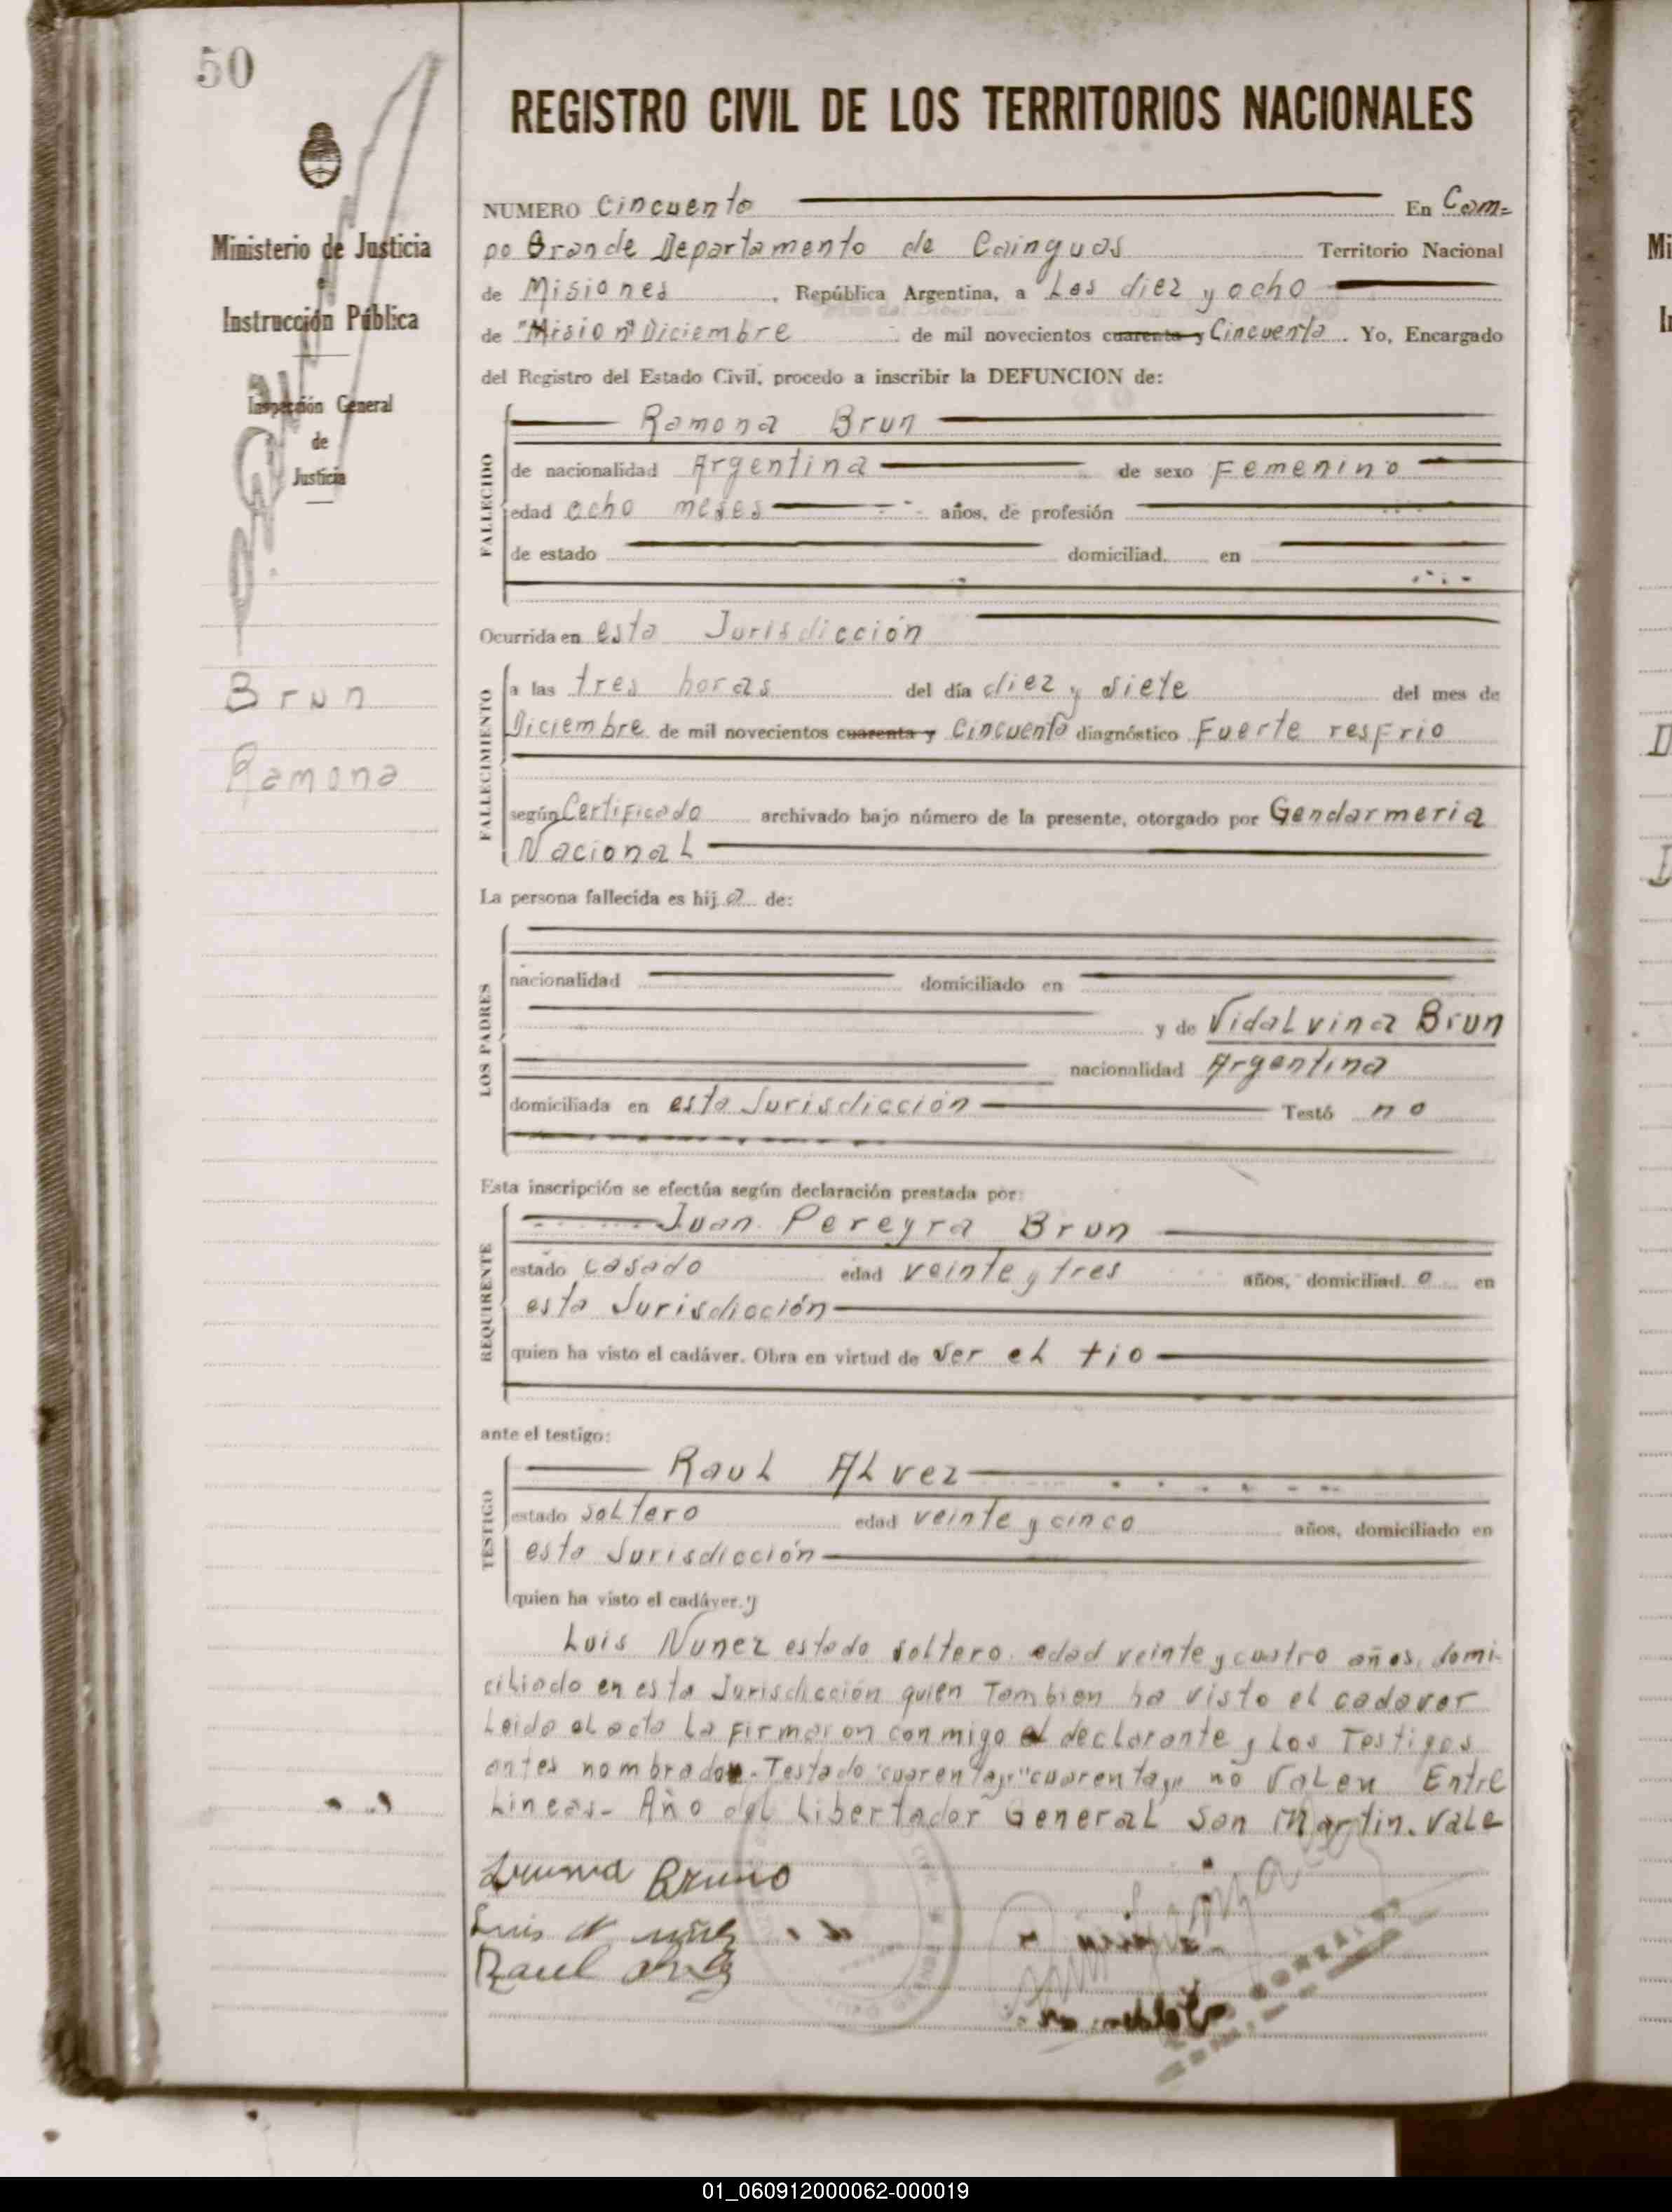 50
REGISTRO CIVIL DE LOS TERRITORIOS NACIONALES
Ministerio de Justicia
e
Instrucción Pública
Inspección General
de
Justicia
Brun
Ramona
NUMERO Cincuenta En Cam=
po Grande Departamento de Cainguas Territorio Nacional
de Misiones, República Argentina, a Los diez y ocho
de Diciembre de mil novecientos cuarenta y Cincuenta. Yo, Encargado
del Registro del Estado Civil, procedo a inscribir la DEFUNCION de:
FALLECIDO
Ramona Brun
de nacionalidad Argentina de sexo Femenino
edad ocho meses años, de profesión
de estado domiciliad en
Ocurrida en esta Jurisdicción
FALLECIMIENTO
a las tres horas del día diez y siete del mes de
Diciembre de mil novecientos cuarenta y Cincuenta diagnóstico Fuerte resfrio
según Certificado archivado bajo número de la presente, otorgado por Gendarmeria
Nacional
La persona fallecida es hija de:
LOS PADRES
nacionalidad domiciliado en
y de Vidalvina Brun
nacionalidad Argentina
domiciliada en esta Jurisdicción Testó no
Esta inscripción se efectúa según declaración prestada por:
REQUIRENTE
Juan Pereyra Brun
estado casado edad veinte y tres años, domiciliado en
esta Jurisdicción
quien ha visto el cadáver. Obra en virtud de ser el tio
ante el testigo:
TESTIGO
Raul Alvez
estado soltero edad veinte y cinco años, domiciliado en
esta Jurisdicción
quien ha visto el cadáver. y
Luis Nunez estado soltero edad veinte y cuatro años, domi-
ciliado en esta Jurisdicción quien Tambien ha visto el cadaver
Leida el acta La Firmaron conmigo el declarante y Los Testigos
antes nombrados.- Testado "cuarenta y" "cuarenta y" no valen Entre
Lineas- Año del Libertador General San Martin. vale
Bruno
Luis
Raul
01_060912000062-000019